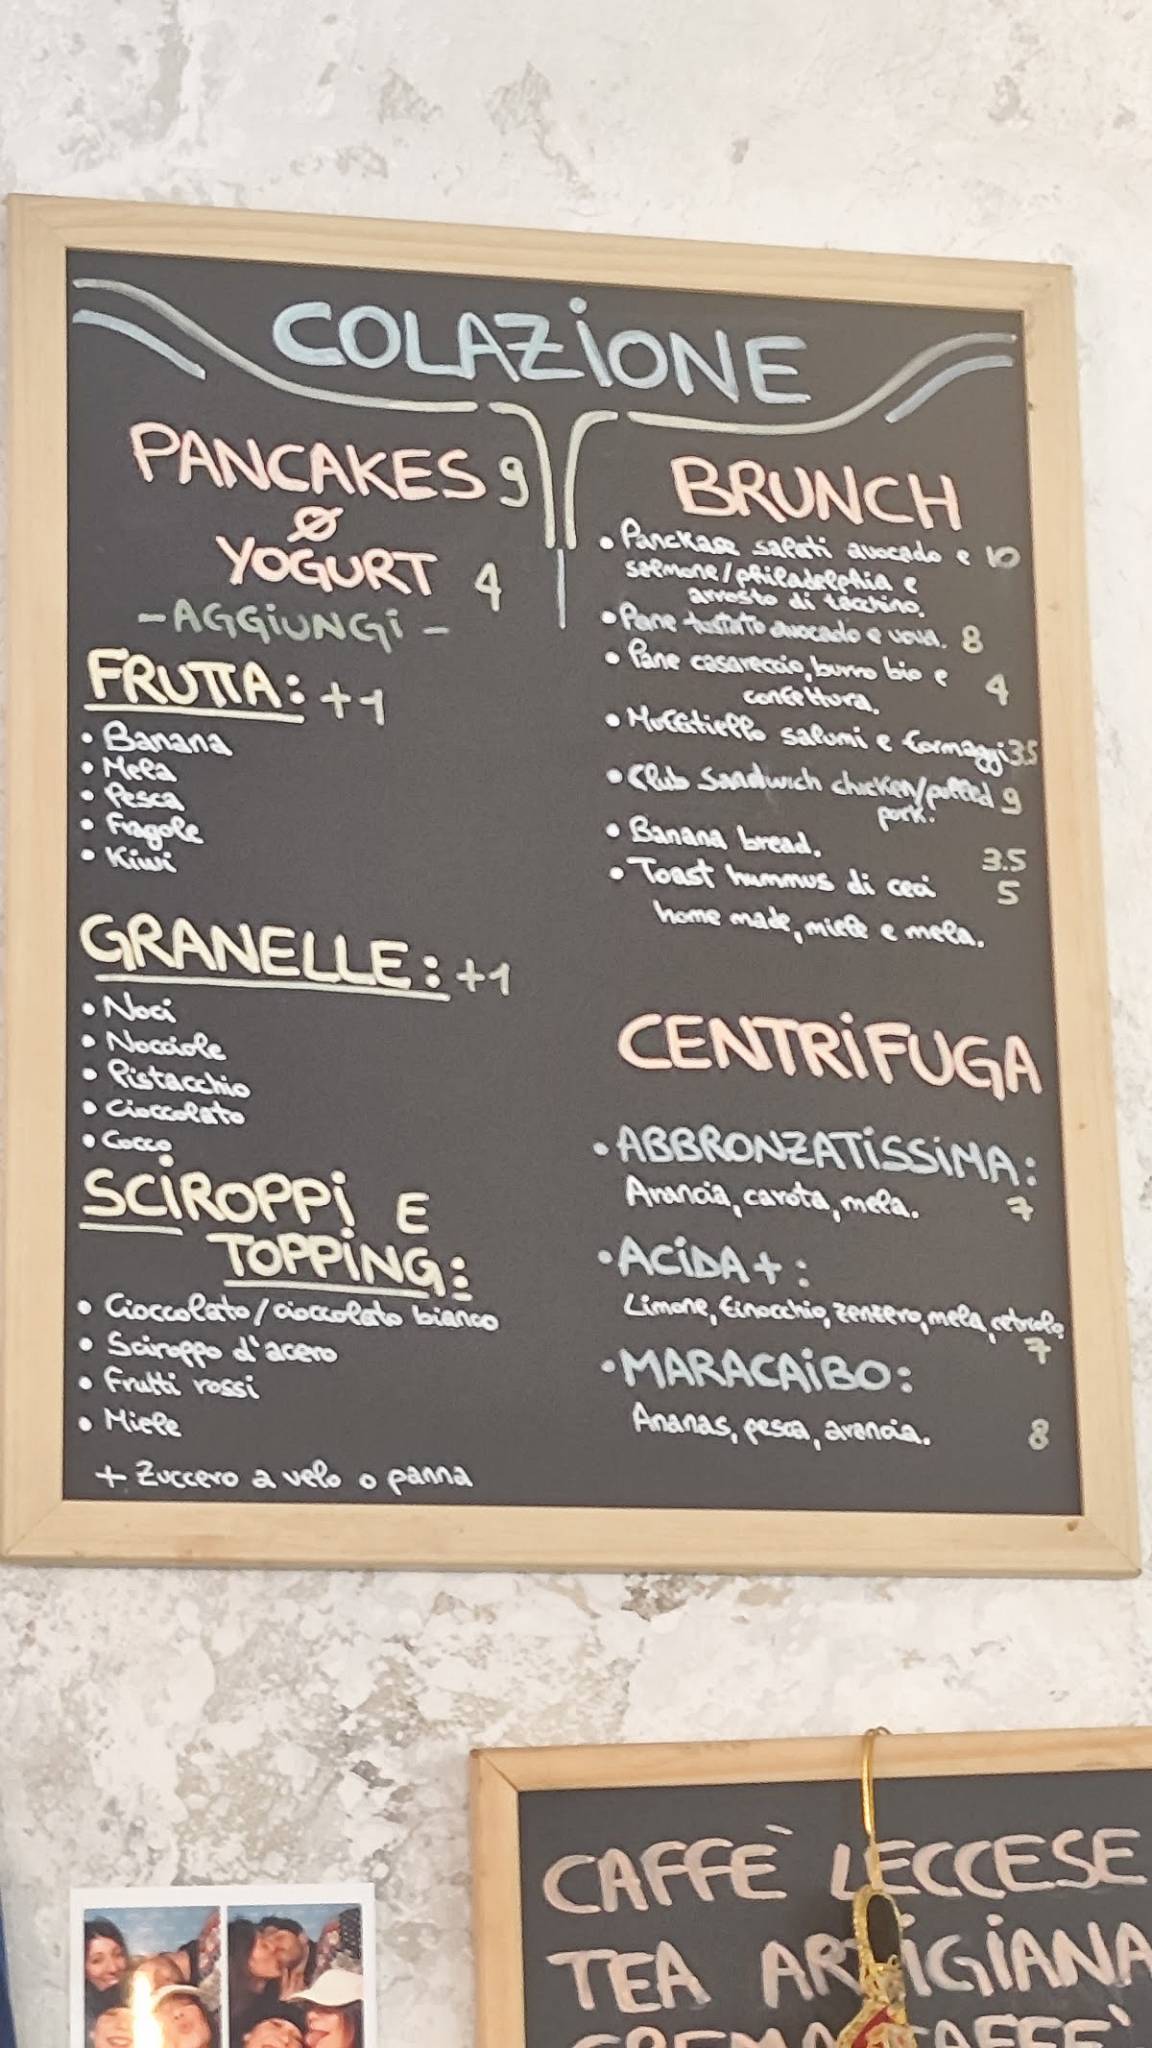 COLAZIONE
PANCAKES 9
Ø
YOGURT 4
- AGGIUNGI -
FRUTTA: +1
• Banana
• Mela
• Pesca
• Fragole
• Kiwi
GRANELLE: +1
• Noci
• Nocciole
• Pistacchio
• Cioccolato
• Cocco
SCIROPPI E
TOPPING:
• Cioccolato/cioccolato bianco
• Sciroppo d'acero
• Frutti rossi
• Miele
+ Zuccero a velo o panna
BRUNCH
• salati avocado e 10
salmone/philadelphia e
arrosto di tacchino.
• Pane tostato avocado e uova. 8
• Pane casareccio, burro bio e
confettura. 4
• salumi e formaggi 3.5
• Club Sandwich chicken/pulled 9
pork.
• Banana bread. 3.5
• Toast hummus di ceci 5
home made, miele e mela.
CENTRIFUGA
• ABBRONZATISSIMA:
Arancia, carota, mela. 7
• ACIDA+:
Limone, finocchio, zenzero, mela, cetriolo.
7
• MARACAIBO:
Ananas, pesca, arancia. 8
CAFFÈ LECCESE
TEA ARTIGIANA
CREMA CAFFÈ